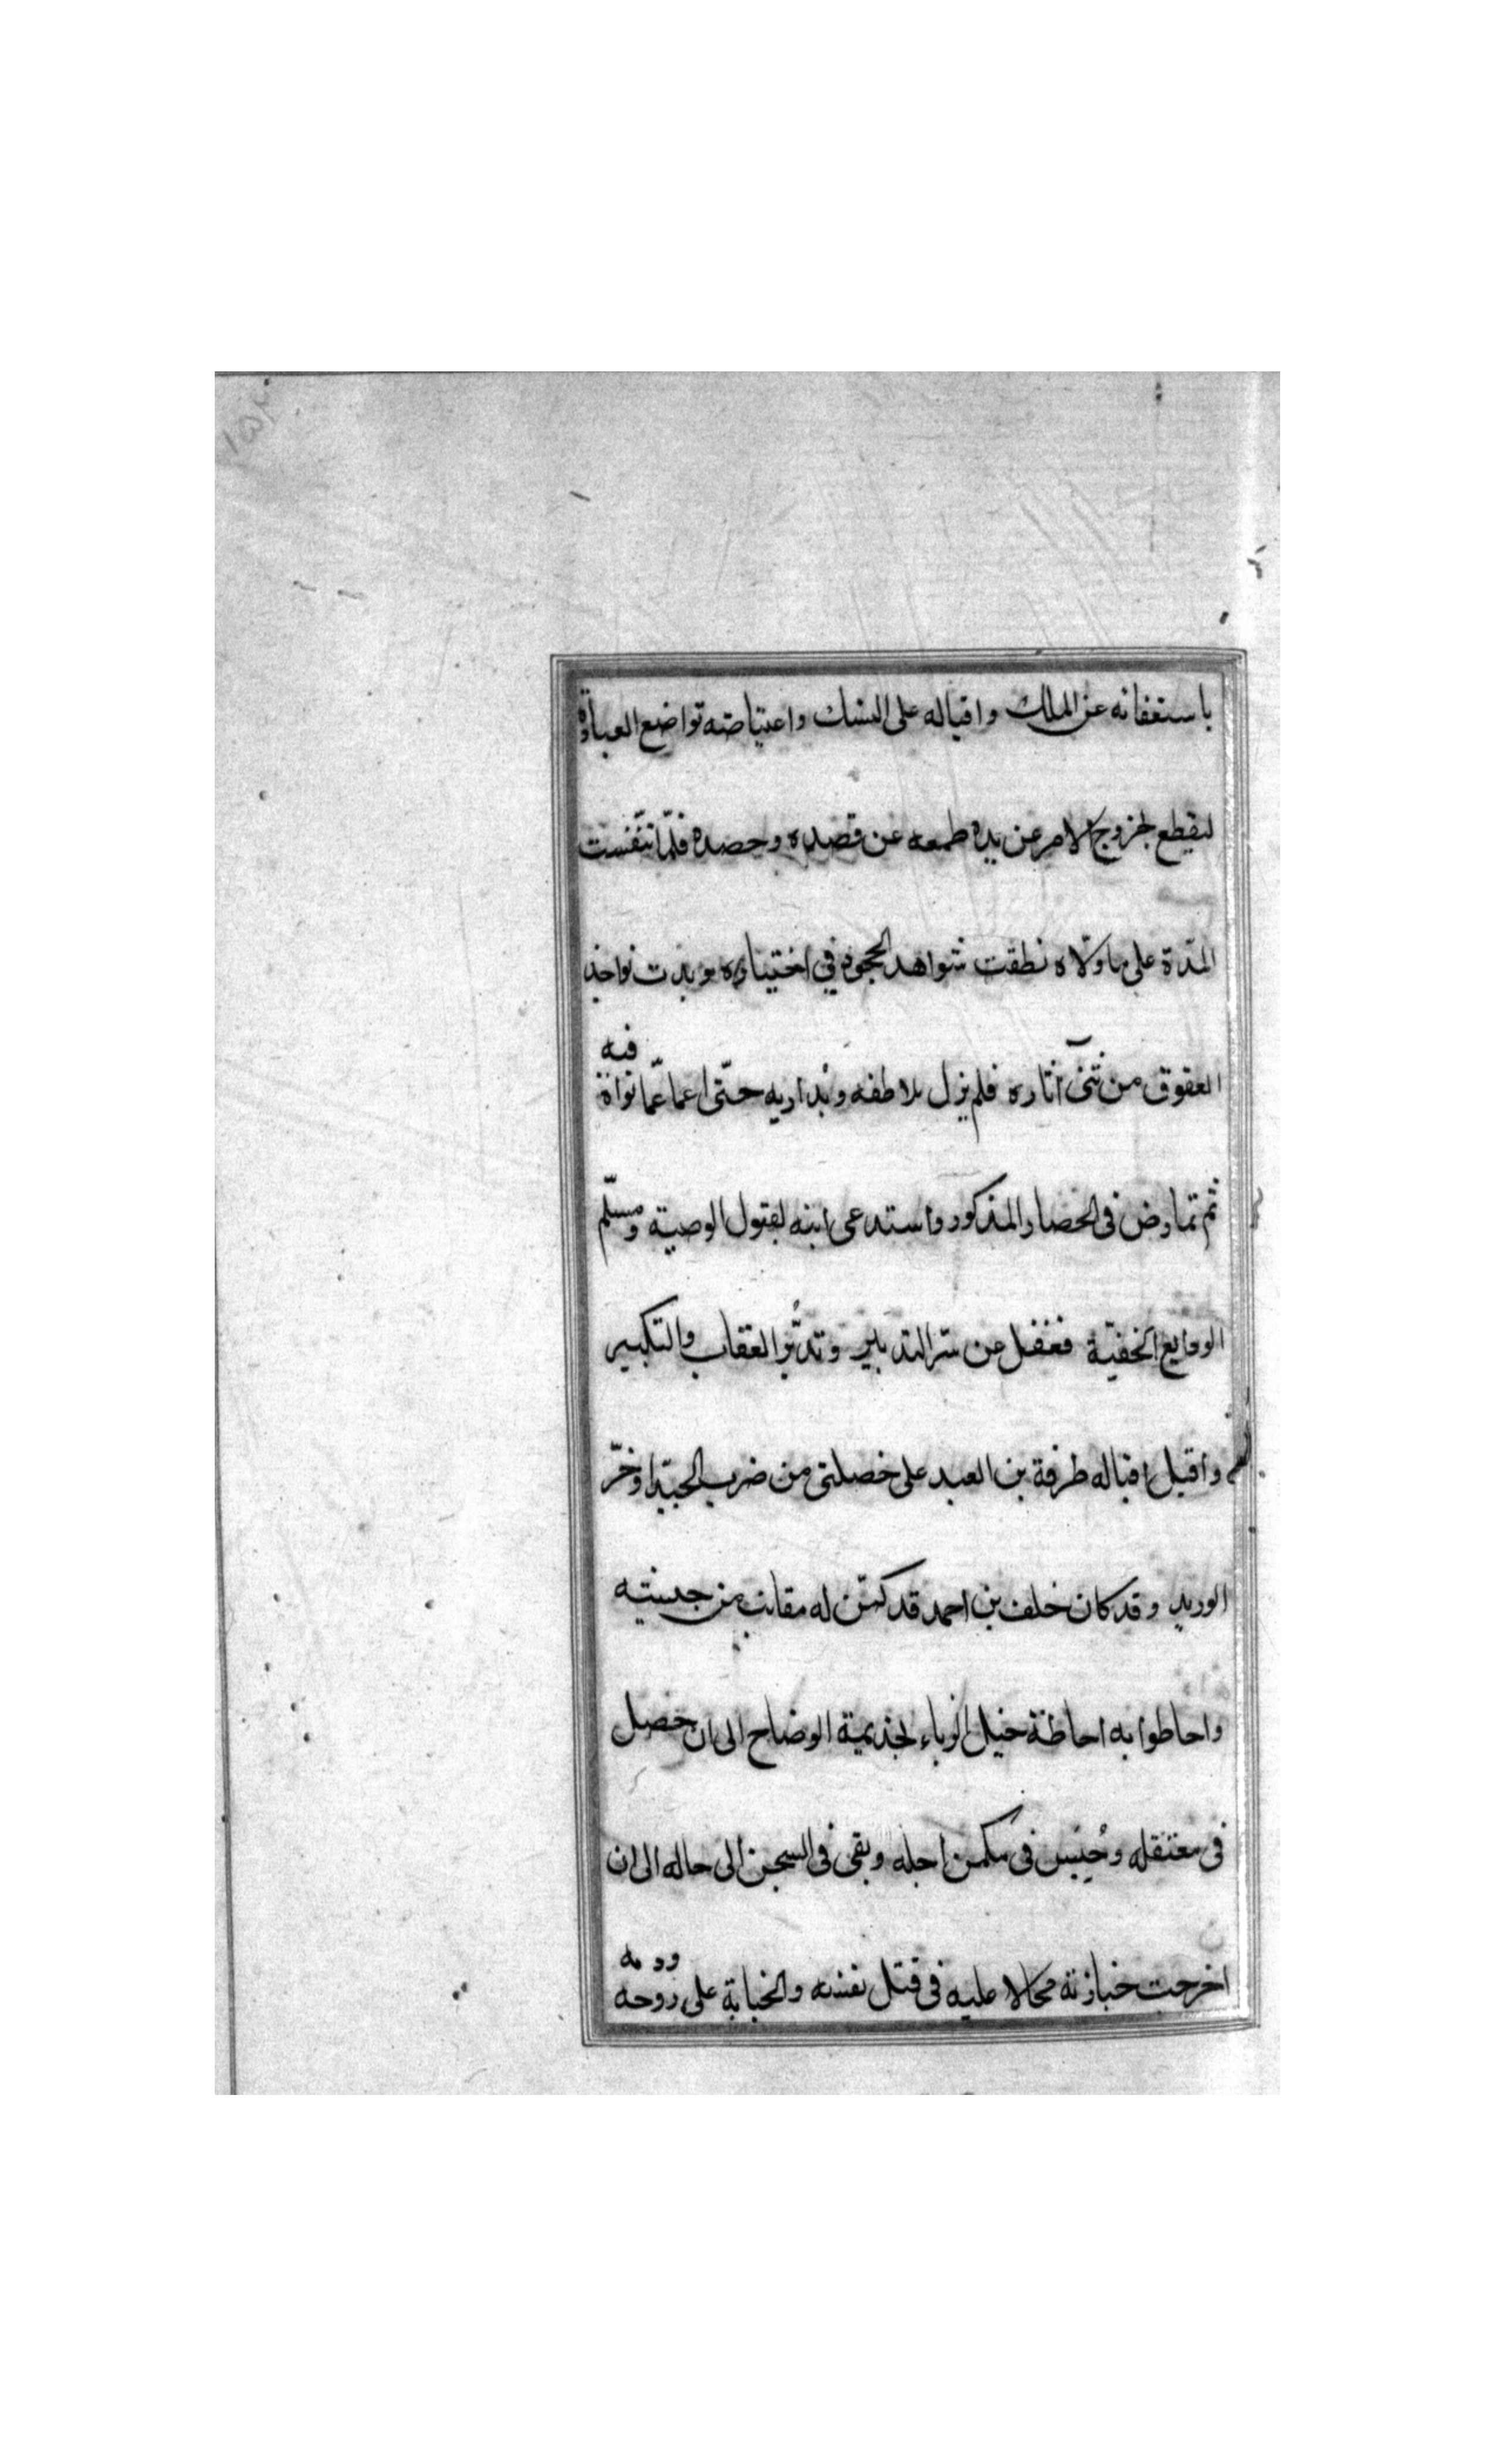 ١٥٢
باستعفائه عن الملك واقباله على النسك واعتياضه تواضع العبأة
ليقطع لخروج الامر عن يده طمعه عن قصده وحصده فلمّا تنفّست
المدّة على ما ولّاه نطقت شواهد الجحود فى اختياره وبدت نواجذ
العقوق من ثنى آثاره فلم يزل يلاطفه ويُداريه حتّى اعما عمّا نواه فيه
ثم تمارض فى الحصار المذكور واستدعى ابنه لقبول الوصية وتسلّم
الودايع الخفيّة فغفل عن سر التدبير وتدبّر العقاب والتكبير
واقبل اقبال طرفة بن العبد على خصلتى من ضرب الجيد او خزّ
الوريد وقد كان خلف بن احمد قد كمّن له مقانب من جنبيه
واحاطوا به احاطة خيل الزباء لجذيمة الوضاح الى ان حصل
فى معتقله وحُبِس فى مكمن اجله وبقى فى السجن الى حاله الى ان
اخرجت جنازته محالا عليه فى قتل نفسه والجناية على روحه